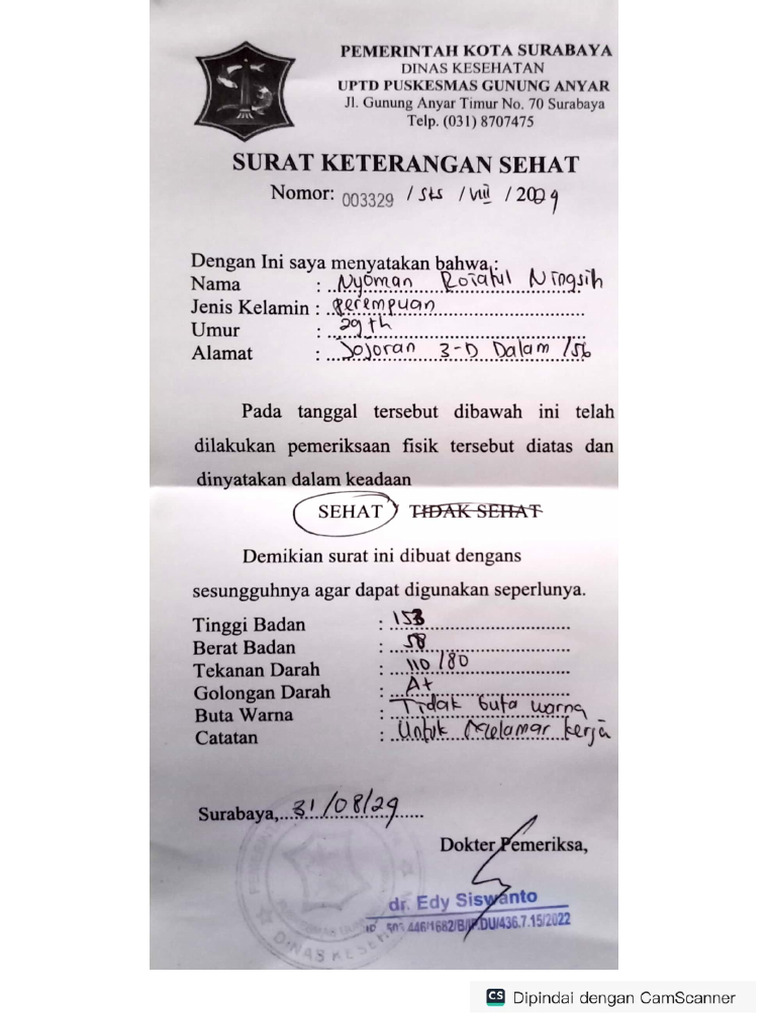 PEMERINTAH KOTA SURABAYA
DINAS KESEHATAN
UPTD PUSKESMAS GUNUNG ANYAR
Jl. Gunung Anyar Timur No. 70 Surabaya
Telp. (031) 8707475
SURAT KETERANGAN SEHAT
Nomor: 003329 / Sks / VIII / 2024
Dengan Ini saya menyatakan bahwa :
Nama : Nyoman Roiatul Ningsih
Jenis Kelamin : perempuan
Umur : 29 th
Alamat : Jojoran 3-D Dalam /56
Pada tanggal tersebut dibawah ini telah
dilakukan pemeriksaan fisik tersebut diatas dan
dinyatakan dalam keadaan
SEHAT TIDAK SEHAT
Demikian surat ini dibuat dengans
sesungguhnya agar dapat digunakan seperlunya.
Tinggi Badan : 153
Berat Badan : 58
Tekanan Darah : 110/80
Golongan Darah : A+
Buta Warna : Tidak buta warna
Catatan : Untuk Melamar kerja
Surabaya, 31/08/24
Dokter Pemeriksa,
dr. Edy Siswanto
DINAS KESEHATAN
Dipindai dengan CamScanner